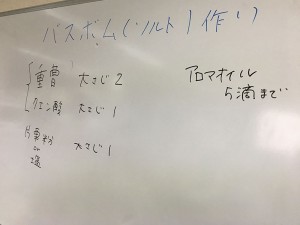 バスボム(ソルト)作り
重曹 大さじ2
クエン酸 大さじ1
片栗粉
or
塩
大さじ1
アロマオイル
5滴まで